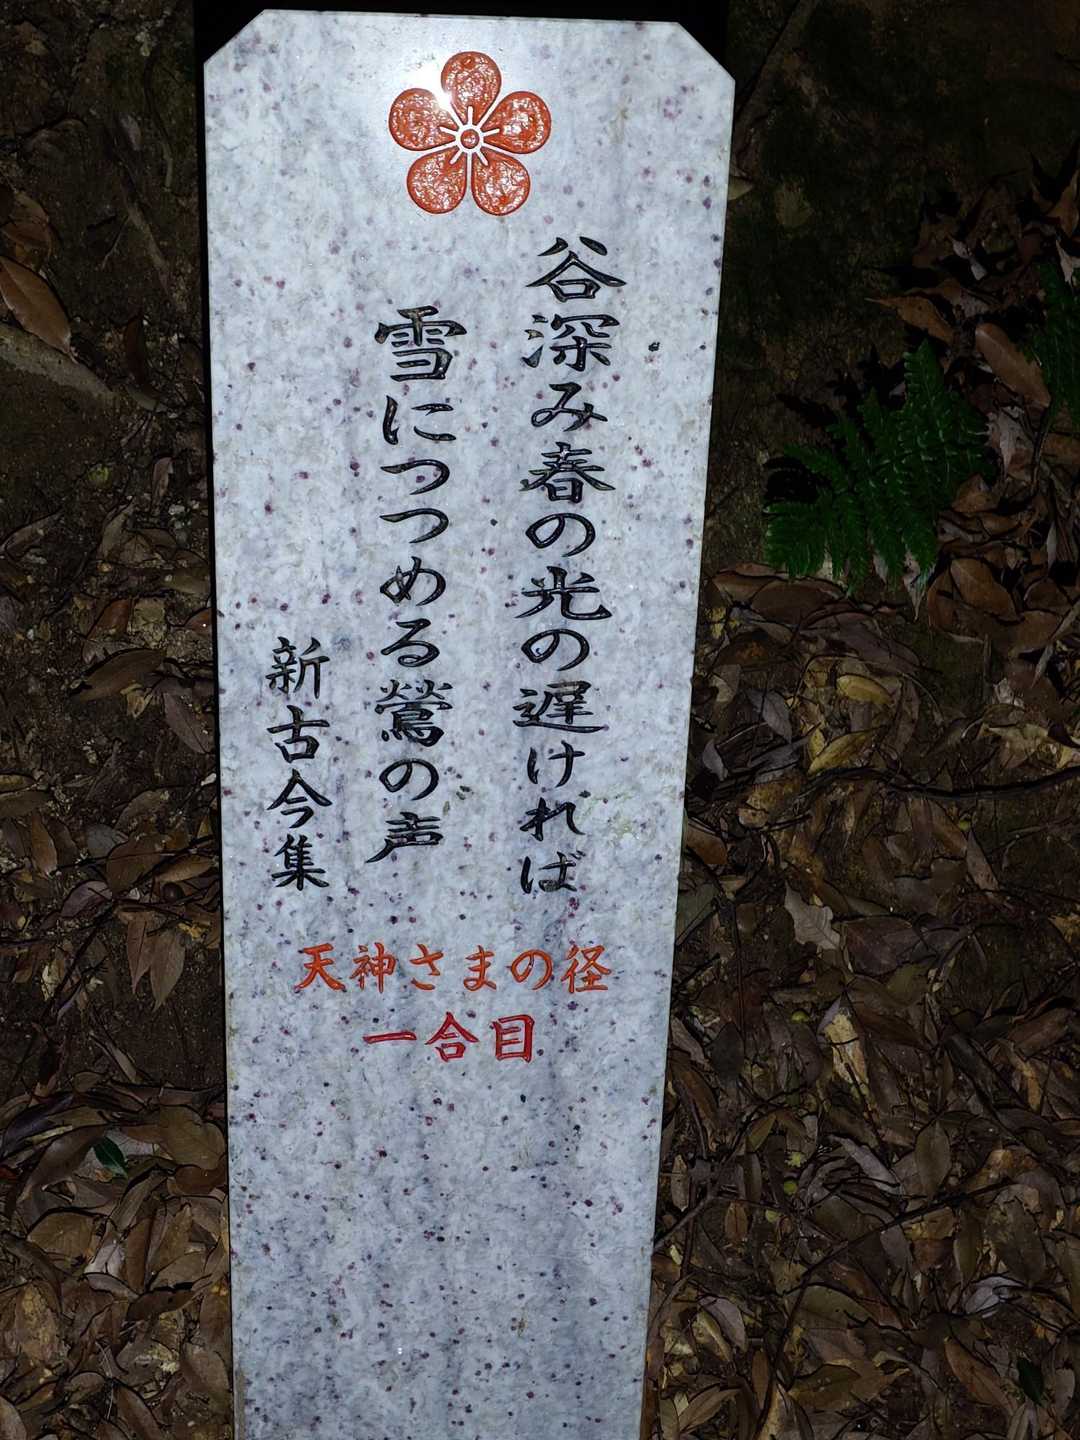 谷深み春の光の遅ければ
雪につつめる鶯の声
新古今集
天神さまの径
一合目